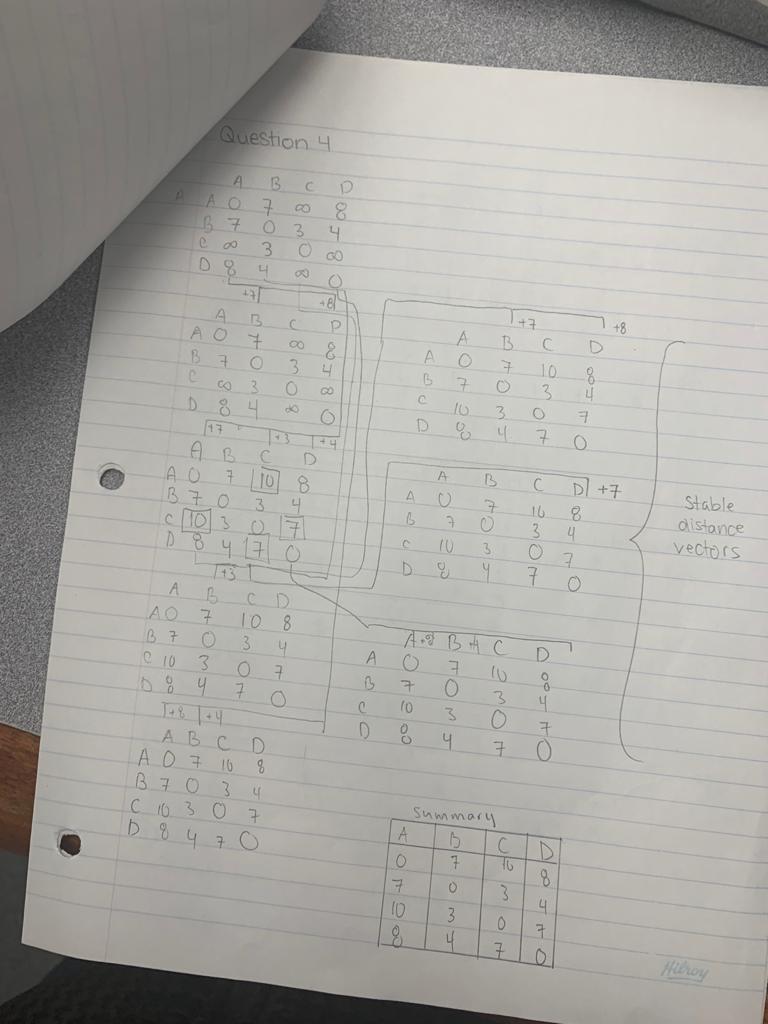 Question 4
A B C D
A A 0 7 ∞ 8
B 7 0 3 4
C ∞ 3 0 ∞
D 8 4 ∞ 0
+7 +8
A B C D
A 0 7 ∞ 8
B 7 0 3 4
C ∞ 3 0 ∞
D 8 4 ∞ 0
+7 +3 +4
A B C D
A 0 7 10 8
B 7 0 3 4
C 10 3 0 7
D 8 4 7 0
+3
A B C D
A 0 7 10 8
B 7 0 3 4
C 10 3 0 7
D 8 4 7 0
+8 +4
A B C D
A 0 7 10 8
B 7 0 3 4
C 10 3 0 7
D 8 4 7 0
+7 +8
A B C D
A 0 7 10 8
B 7 0 3 4
C 10 3 0 7
D 8 4 7 0
A B C D +7
A 0 7 10 8
B 7 0 3 4
C 10 3 0 7
D 8 4 7 0
A +8 B +4 C D
A 0 7 10 8
B 7 0 3 4
C 10 3 0 7
D 8 4 7 0
Stable
distance
vectors
Summary
A B C D
0 7 10 8
7 0 3 4
10 3 0 7
8 4 7 0
Hilroy